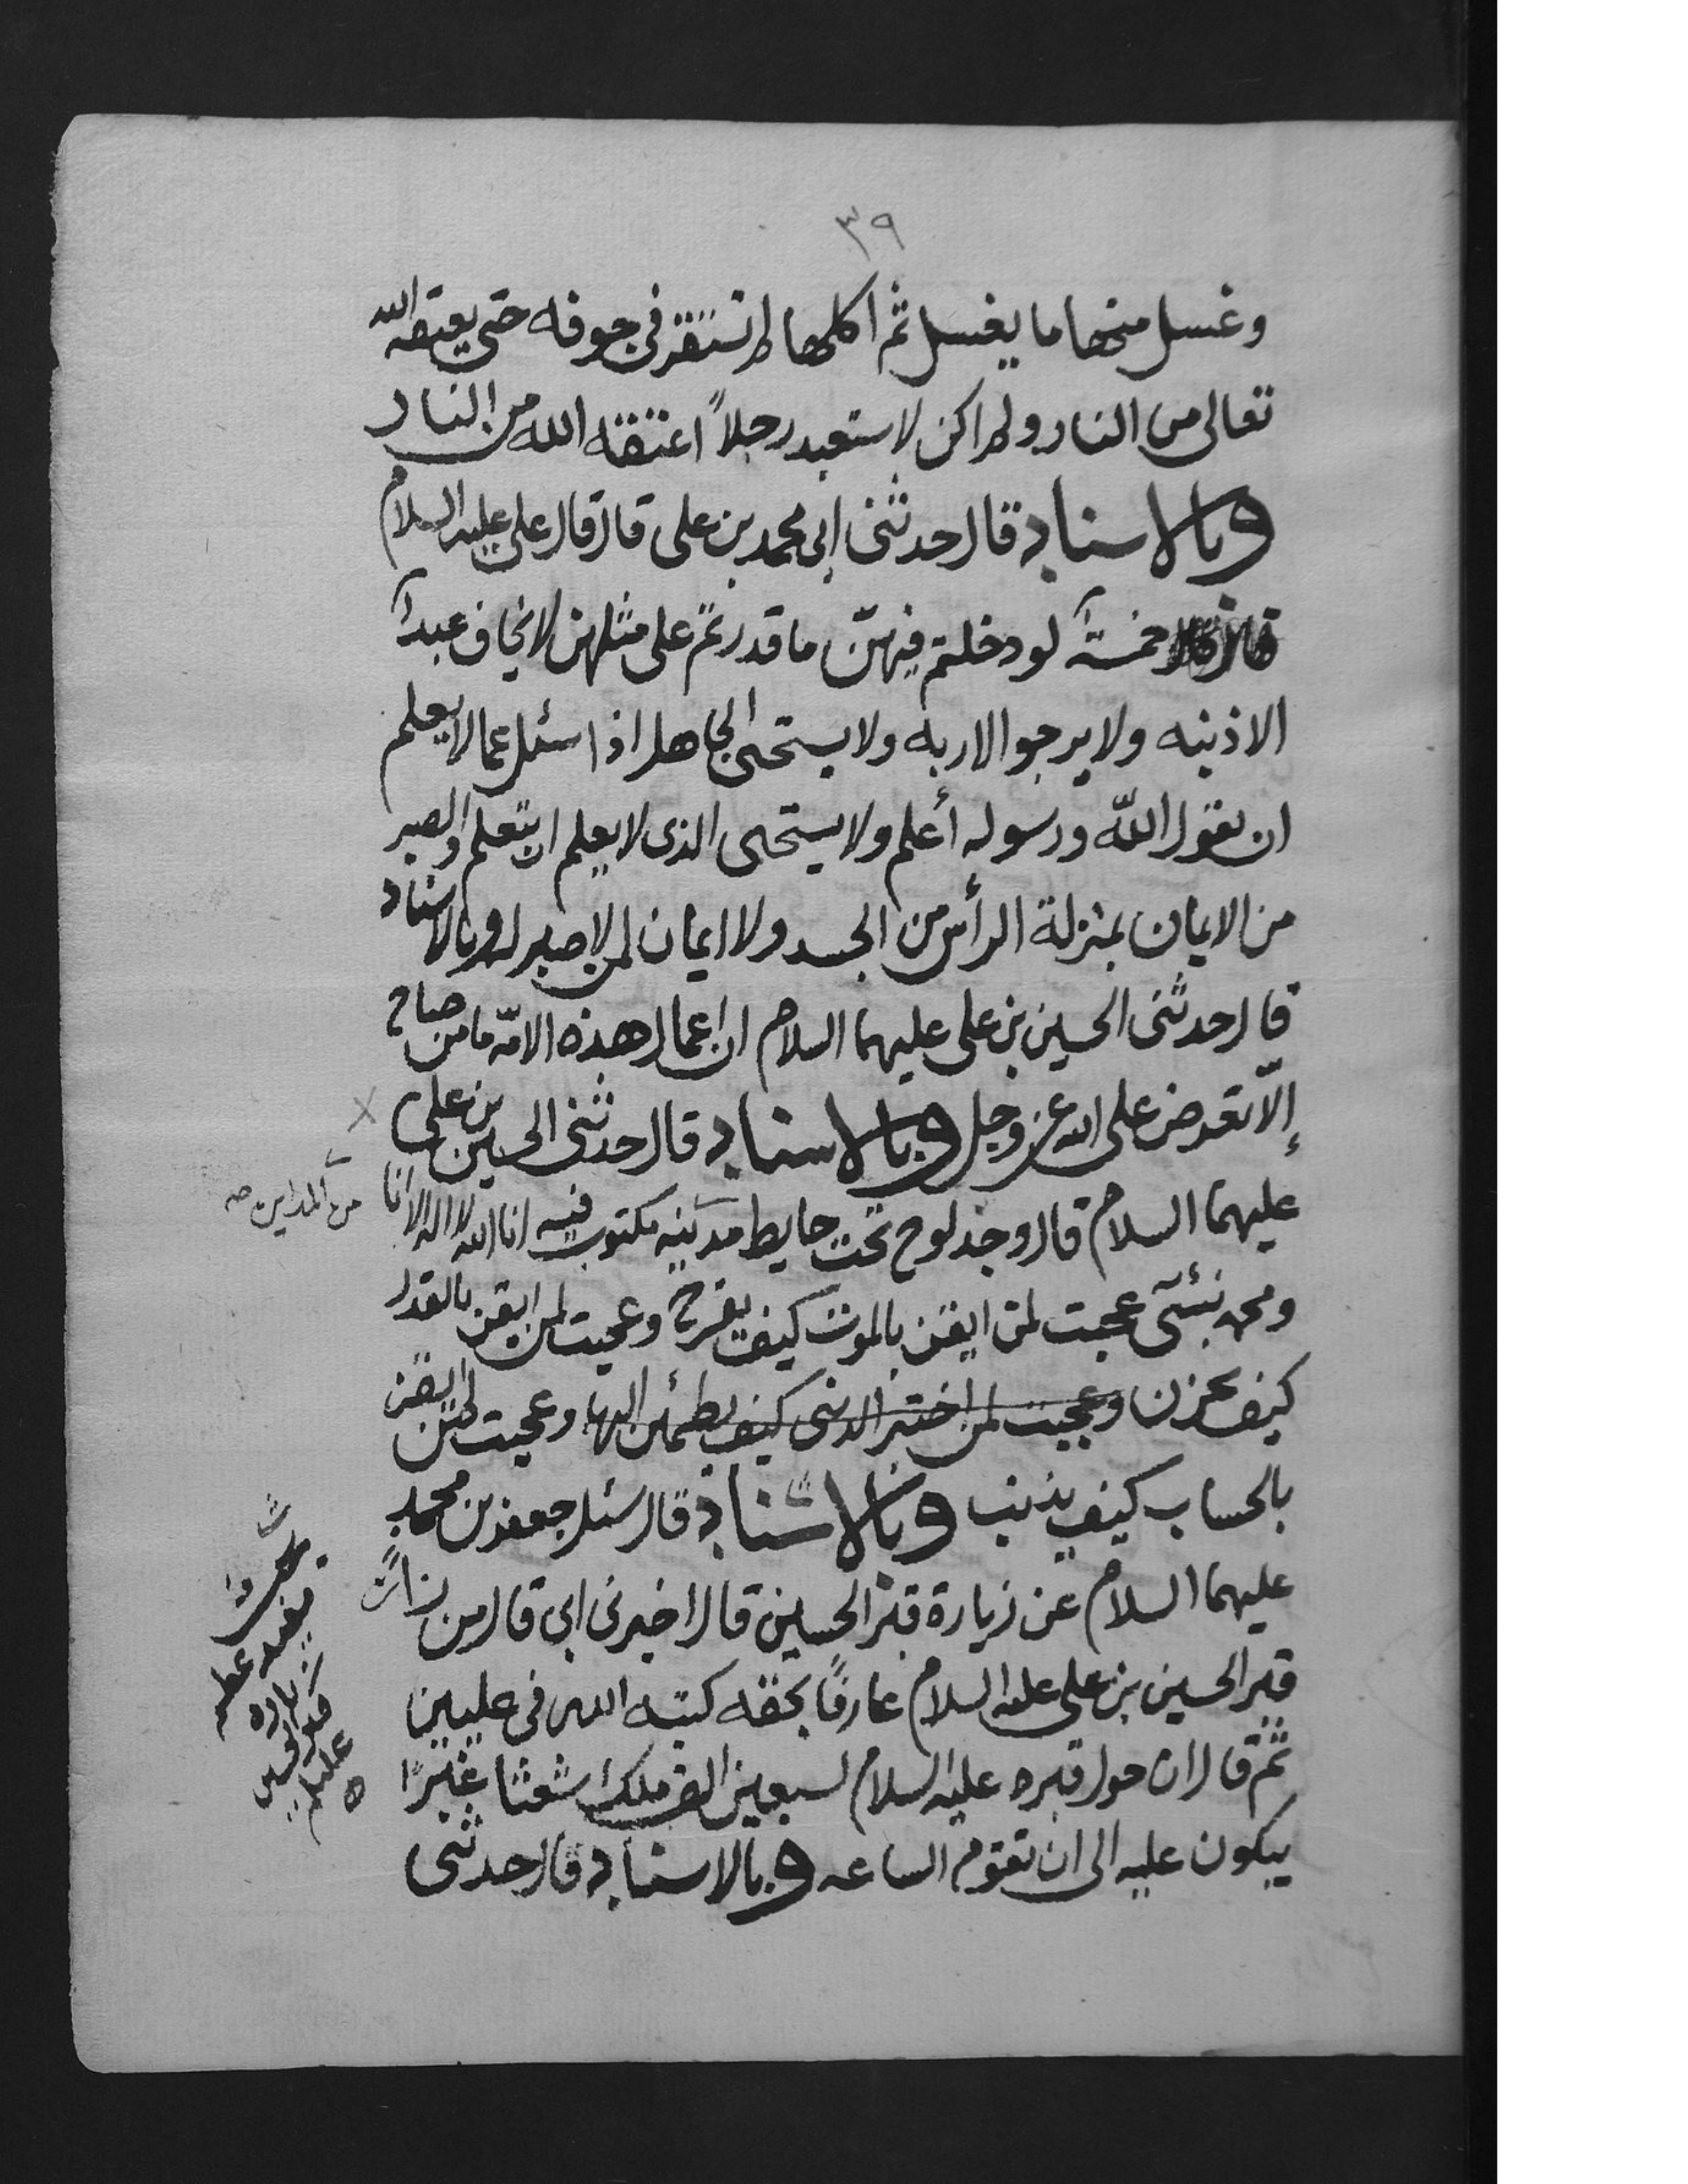 ٣٩
وغسل منها ما يغسل ثم اكلها لم تستقر في جوفه حتى يعتقه الله
تعالى من النار ولم اكن لاستعبد رجلاً اعتقه الله من النار
وبالاسناد قال حدثني ابي محمد بن علي قال قال علي عليه السلام
خمسة لو دخلتم فيهنّ ما قدرتم على مثلهن لا يخاف عبداً
الا ذنبه ولا يرجو الا ربه ولا يستحى الجاهل اذا سئل عما لا يعلم
ان يقول اللّه ورسوله أعلم ولا يستحى الذي لا يعلم ان يتعلم والصبر
من الايمان بمنزلة الرأس من الجسد ولا ايمان لمن لا صبر له وبالاسناد
قال حدثني الحسين بن علي عليهما السلام ان اعمال هذه الامّة ما من صباح
إلاّ تعرض على الله عز وجل وبالاسناد قال حدثني الحسين بن علي
عليهما السلام قال وجد لوح تحت حايط مدينه مكتوب فيه انا الله لا اله الا انا
من المداين صه
ومحمد نبئي عجبت لمن ايقن بالموت كيف يفرح وعجبت لمن ايقن بالقدر
كيف يحزن وعجبت لمن اختبر الدنى كيف يطمئن اليها وعجبت لمن ايقن
بالحساب كيف يذنب وبالاسناد قال سئل جعفر بن محمد
عليهما السلام عن زيارة قبر الحسين قال اخبرني ابي قال من زار
قبر الحسين بن علي عليه السلام عارفًا بحقه كتبه الله في عليين
ثم قال ان حول قبره عليه السلام لسبعين الف ملك شعثا غبرًا
يبكون عليه الى ان تقوم الساعه وبالاسناد قال حدثني
زياره
قبر الحسين
عليلم